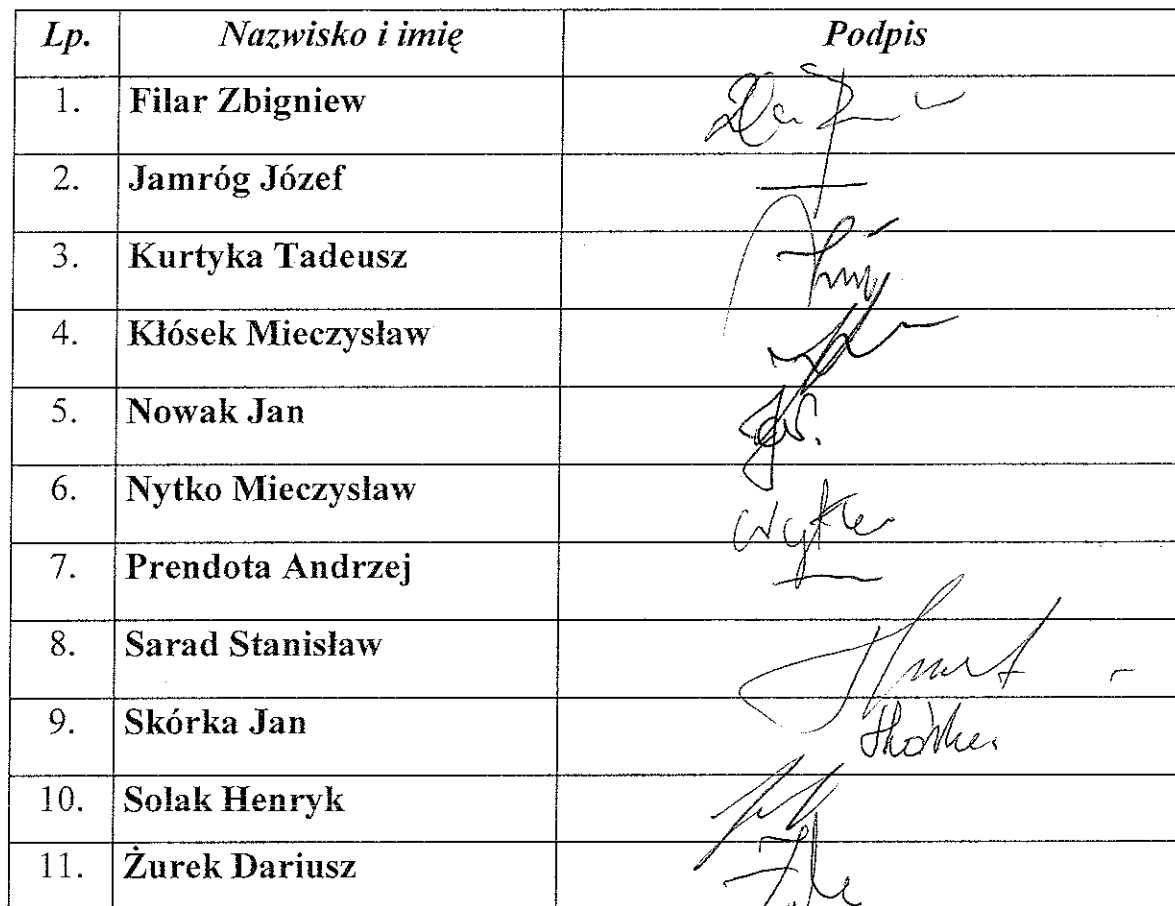 Lp. Nazwisko i imię Podpis
1. Filar Zbigniew
2. Jamróg Józef —
3. Kurtyka Tadeusz
4. Kłósek Mieczysław
5. Nowak Jan
6. Nytko Mieczysław
7. Prendota Andrzej —
8. Sarad Stanisław
9. Skórka Jan Skórka
10. Solak Henryk
11. Żurek Dariusz